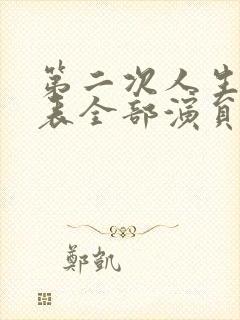 第二次人生
表全部演員
鄭凱